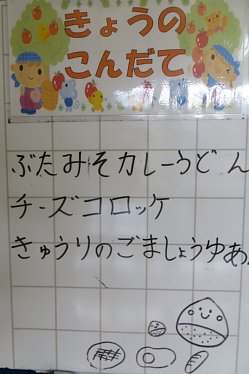 きょうの
こんだて
ぶたみそカレーうどん
チーズコロッケ
きゅうりのごましょうゆあ